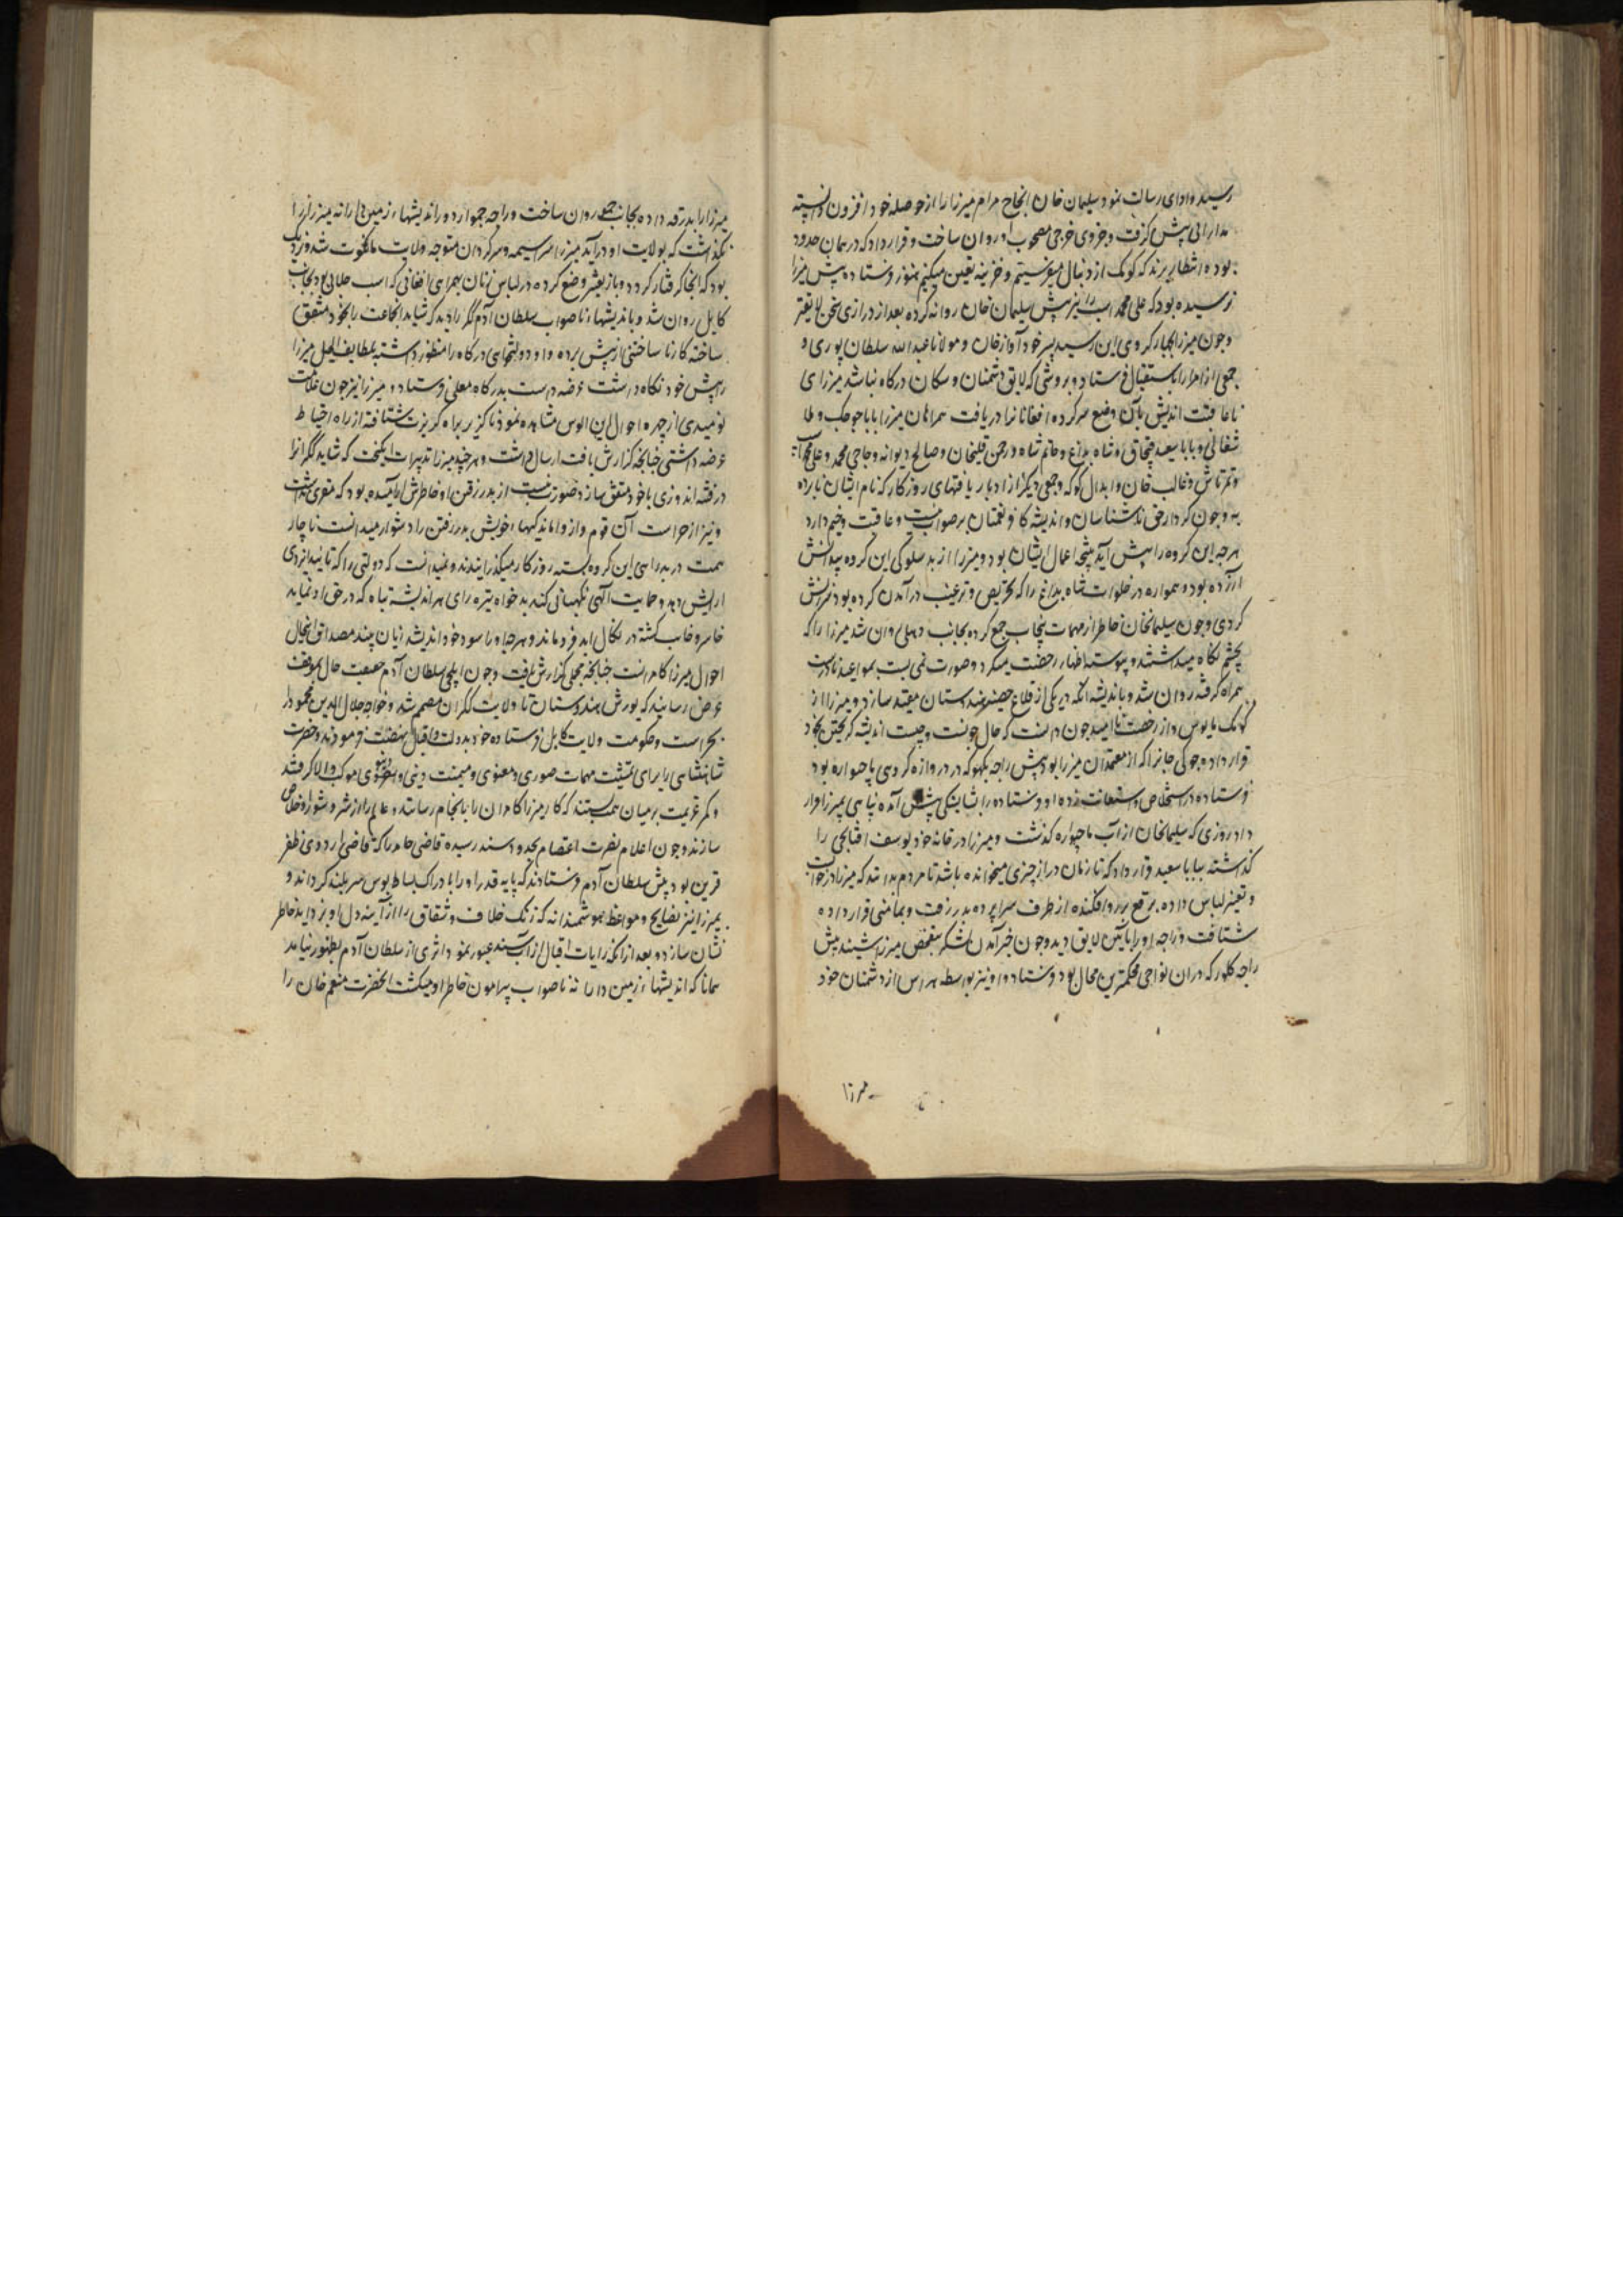 رسید و ادای رسالت نمود سلیمان خان انجاح مرام میرزا را از حوصله خود افزون دانسته
مدارائی پیش گرفت و جزوی خرجی مصحوب او روان ساخت و قرار داد که در همان حدود
بوده انتظار برند که کومک از دنبال میفرستیم و خزینه تعیین میکنیم هنوز فرستاده پیش میرزا
نرسیده بود که علی محمد اسپ را نیز پیش سلیمان خان روانه کرده بعد از درازی سخن
و چون میرزا بچهار کروهی این رسید پسر خود آواز خان و مولانا عبدالله سلطان پوری و
جمعی از امرا را باستقبال فرستاد و بروشی که لایق دشمنان و سکان درگاه نباشد میرزای
نا عاقبت اندیش بآن وضع سرکرده افغانان را دریافت همراهان میرزا بابا جوجک و ملا
شفائی و بابا سعید قبچاق و شاه بداغ و عالم شاه و رحمن قلیخان و صالح دیوانه و حاجی محمد و علی محمد
و تمرتاش و غالب خان و ابدال کوکه و جمعی دیگر از ادبار یافتهای روزگار که نام ایشان نابرده
به و چون کردار حق ناشناسان و اندیشه کافر نعمتان بر صواب نیست و عاقبت وخیم دارد
هرچه این گروه را پیش آید نتیجه اعمال ایشان بود و میرزا از بد سلوکی این گروه بیدانش
آزرده بود و همواره در خلوات شاه بداغ را که تحریص و ترغیب در آمدن کرده بود سرزنش
کردی و چون سلیمانخان خاطر از مهمات پنجاب جمع کرده بجانب دهلی روان شد میرزا را که
بچشم نگاه میداشتند و پیوسته اظهار رخصت میکرد و صورت نمی بست بمواعید نادرست
همراه گرفته روان شد و باندیشه آنکه در یکی از قلاع حصینه هندوستان مقید سازد و میرزا از
کومک مایوس و از رخصت ناامید چون دانست که حال چونست و چیست اندیشه گریختن بخود
قرار داد و جوکی خان را که از معتمدان میرزا بود پیش راجه بکهو که در دوازده کروهی ماچواره بود
فرستاده در استخلاص استعانت زد و او فرستاده را بشایستگی پیش آمده پناهی بمیرزا قرار
داد روزی که سلیمانخان از آب ماچواره گذشت و میرزا در خانه خود یوسف افتابچی را
گذاشته ببابا سعید قرار داد که تا زمان دراز چیزی میخوانده باشد تا مردم بدانند که میرزا در خواب
و تغییر لباس داده برقع بر رو افکنده از طرف سراپرده بدر رفت و بمامنی قرار داده
شتافت و راجه او را بآیین لایق دید و چون خبر آمدن لشکر بتفحص میرزا شنید پیش
راجه کهلور که دران نواحی محکمترین محال بود فرستاد و او نیز بواسطه هراس از دشمنان خود
میرزا
میرزا را بدرقه داده بجانب جمو روان ساخت و راجه جمو از دوراندیشیهاء زمین دارانه میرزا را
نگذاشت که بولایت او در آید میرزا سراسیمه و سرگردان متوجه ولایت مانکوت شد و نزدیک
بود که انجا گرفتار گردد و باز تغییر وضع کرده در لباس زنان بهمراهی افغانی که اسپ جلابی بود بجانب
کابل روان شد و باندیشهاء ناصواب سلطان آدم گکر را دید که شاید انجماعت را بخود متفق
ساخته کار ناساختنی از پیش برده و او دولتخواهی درگاه را منظور داشته بلطایف الحیل میرزا
را پیش خود نگاه داشت عرضه داشت بدرگاه معلی فرستاد و میرزا نیز چون علامت
نومیدی از چهره احوال این الوس مشاهده نمود ناگزیر براه گریزت شتافته از راه احتیاط
عرضه داشتی چنانچه گزارش یافت ارسال داشت و هر چند میرزا تدبیرات انگیخت که شاید گکرانرا
در فتنه اندوزی با خود متفق سازد صورت نبست از بدر رفتن او خاطرش آرامیده بود که مقری نداشت
و نیز از حراست آن قوم و از واماندگیهاء خویش بدر رفتن را دشوار میدانست ناچار
همت در بدراهی این گروه بسته روزگار میگذرانیدند و نمیدانست که دولتی را که تائید ایزدی
آرایش دهد و حمایت الهی نگهبانی کند بدخواه تیره رای هر اندیشه تباه که در حق او نماید
خاسر و خایب گشته در نکال ابد فرو ماند و هر چه او را سود خود اندیشد زیان بیند مصداق اینحال
احوال میرزا کامرانست چنانچه مجملی گزارش یافت و چون ایلچی سلطان آدم حقیقت حال بموقف
عرض رسانید که یورش هندوستان تا ولایت گکران مصمم شد و خواجه جلال الدین محمود را
بحراست و حکومت ولایت کابل فرستاده خود بدولت و اقبال نهضت فرمودند و حضرت
شاهنشاهی را برای تمشیت مهمات صوری و معنوی و میمنت دینی و دنیوی در موکب والا گرفتند
و کمر عزیمت بر میان همت بستند که کار میرزا کامران را بانجام رسانند و عالم را از شر و شور او خلاص
سازند و چون اعلام نصرت اعتصام بحدود سند رسید قاضی حامد را که قاضی اردوی ظفر
قرین بود پیش سلطان آدم فرستادند که پایه قدر او را بادراک بساط بوس سربلند گرداند و
بمیرزا نیز نصایح و مواعظ هوشمندانه که زنگ خلاف و شقاق را از آینه دل او بزداید خاطر
نشان سازد و بعد از آنکه رایات اقبال از آب سند عبور نمود اثری از سلطان آدم بظهور نیامد
همانا که اندیشهاء زمین دارانه ناصواب پیرامون خاطر او میگشت انحضرت منعم خان را